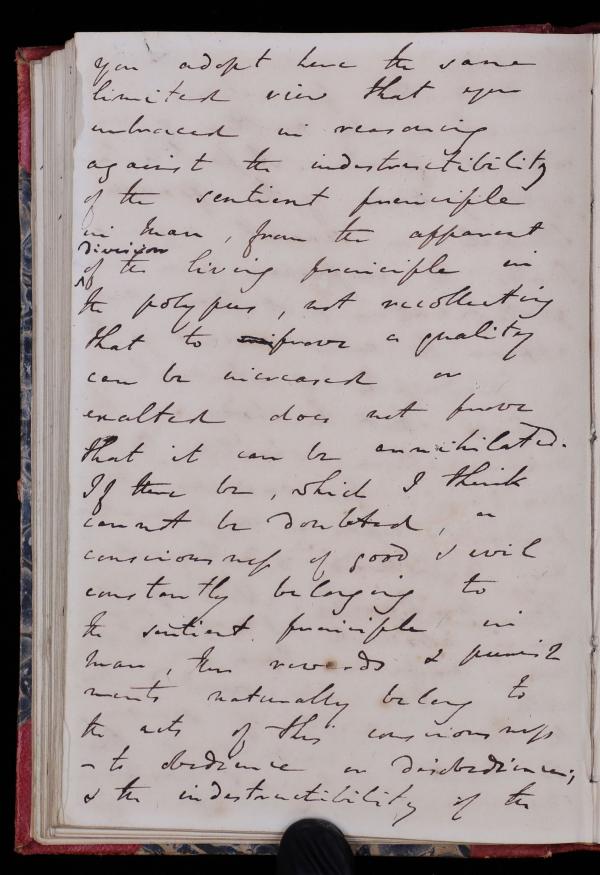 you adopt here the same
limited view that you
embraced in reasoning
against the indestructibility
of the sentient principle
in man, from the apparent
division
of the living principle in
the polypus, not recollecting
that to prove a quality
can be increased or
exalted does not prove
that it can be annihilated.
If there be, which I think
cannot be doubted, a
consciousness of good & evil
constantly belonging to
the sentient principle in
man, then rewards & punish
ments naturally belong to
the acts of this consciousness
– to obedience or disobedience;
& the indestructibility of the